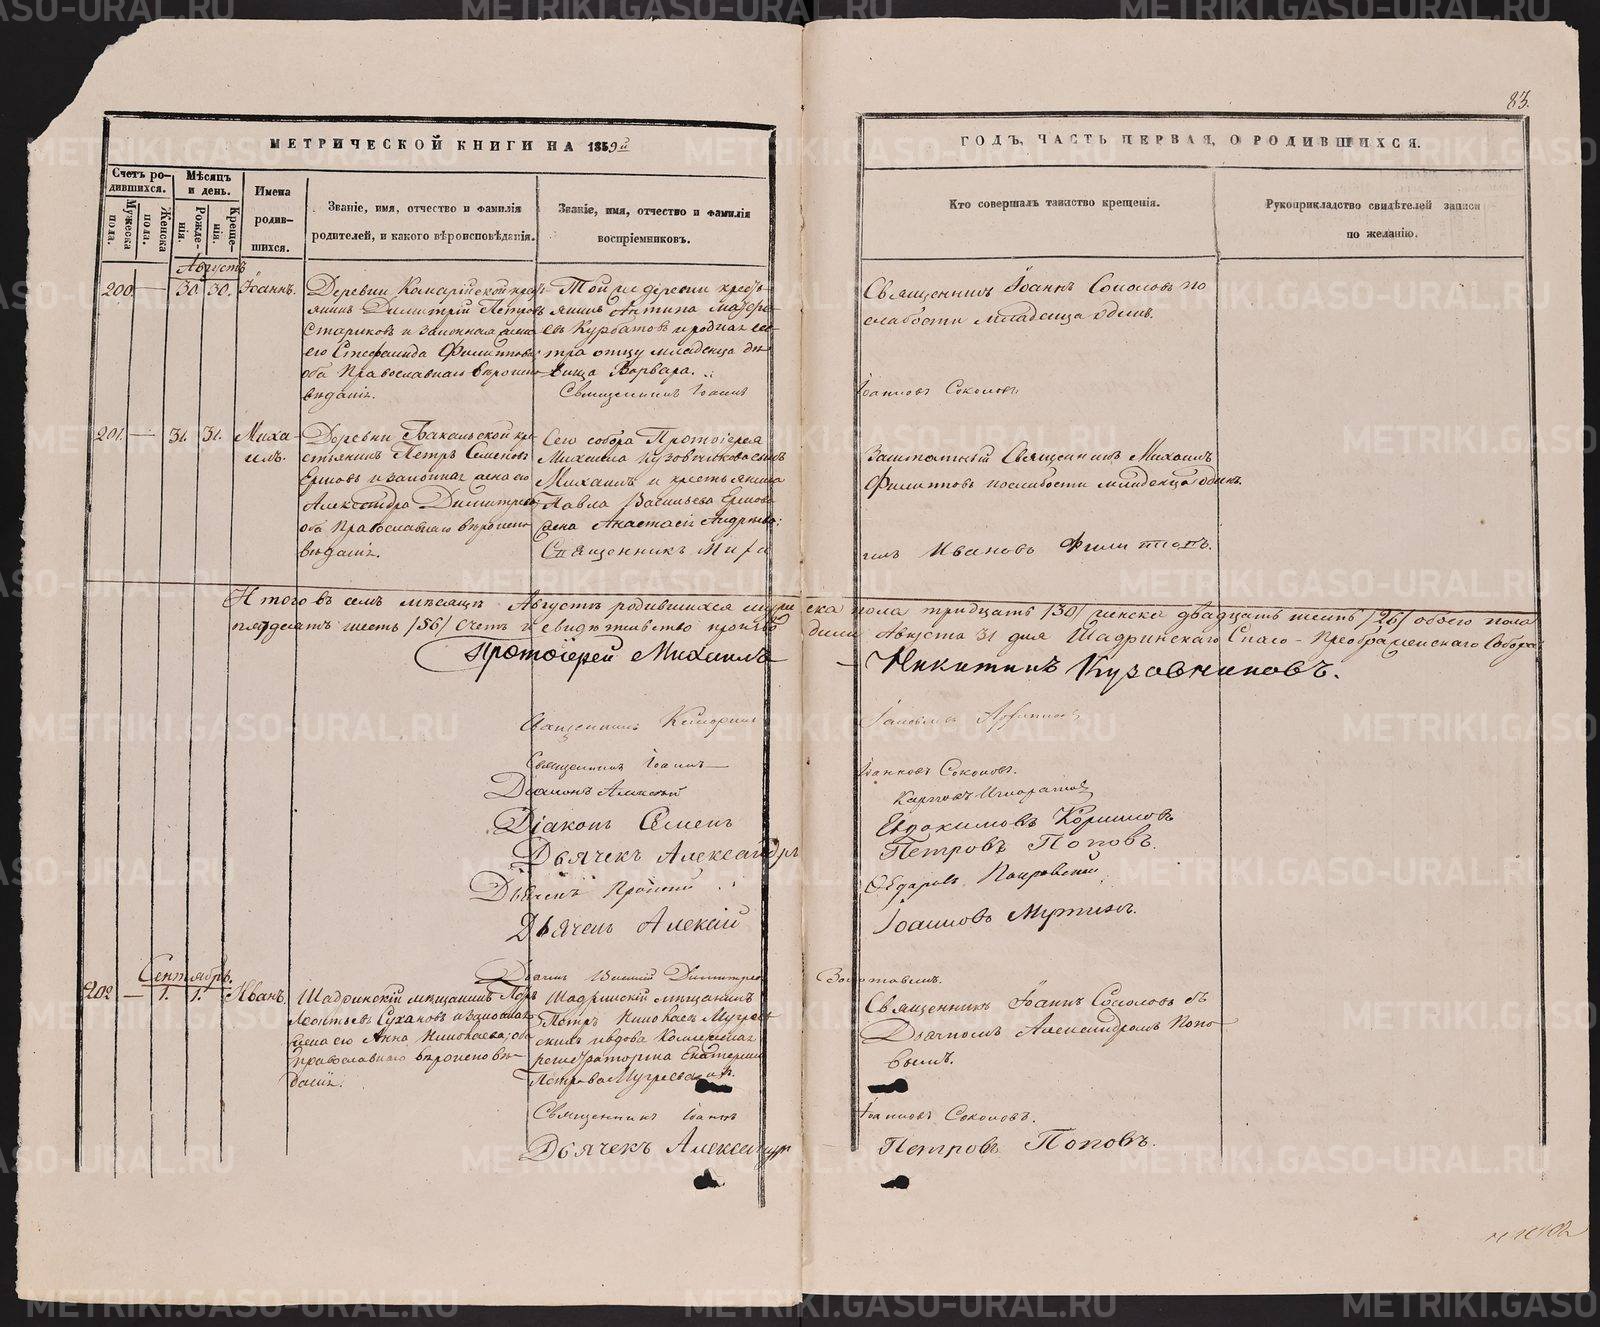 83.
МЕТРИЧЕСКОЙ КНИГИ НА 1859й
ГОДЪ, ЧАСТЬ ПЕРВАЯ, О РОДИВШИХСЯ.
Счетъ ро-
дившихся.
Мужеска
пола.
Женска
пола.
Мѣсяцъ
и день.
Рожде-
нія.
Креще-
нія.
Имена
родив-
шихся.
Званіе, имя, отчество и фамилія
родителей, и какого вѣроисповѣданія.
Званіе, имя, отчество и фамилія
воспріемниковъ.
Кто совершалъ таинство крещенія.
Рукоприкладство свидѣтелей записи
по желанію.
Августъ
200. — 30. 30. Іоаннъ.
Деревни
Димитрій Петровъ
Стариковъ и законная жена
его Стефанида Филиппова
оба Православнаго вѣроиспо-
вѣданія.
Той же деревни кресть-
янинъ Антипа
Курбатовъ и родная сес-
тра отцу младенца дѣ-
вица Варвара.
Священникъ Іоаннъ
Священникъ Іоаннъ Соколовъ по
слабости младенца одинъ.
Іоанновъ Соколовъ.
201. — 31. 31. Миха-
илъ.
Деревни Бакальской кре-
стьянинъ Петръ Семеновъ
Ершовъ и законная жена его
Александра Димитріева
оба Православнаго вѣроиспо-
вѣданія.
Сего собора Протоіерея
Михаила Кузовникова сынъ
Михаилъ и крестьянина
Павла Васильева Ершова
жена Анастасія Андреева.
Священникъ Миха
Заштатный Священникъ Михаилъ
Филипповъ по слабости младенца одинъ.
илъ Ивановъ Филипповъ.
Итого въ семъ мѣсяцѣ Августѣ родившихся мужеска пола тридцать /30/ женска двадцать шесть /26/ обоего пола
пятдесятъ шесть /56/ Счетъ и свидѣтельство производили Августа 31 дня Шадринскаго Спасо-Преображенскаго Собора
Протоіерей Михаилъ — Никитинъ Кузовниковъ.
Священникъ
Священникъ Іоаннъ — Іоанновъ Соколовъ.
Діаконъ Алексей Карповъ Игноратовъ
Діаконъ Семенъ Евдокимовъ Коршиковъ
Дьячекъ Александръ Петровъ Поповъ.
Дьячекъ Покровскій
Дьячекъ Алексій Іоанновъ
Дьячекъ
Сентябрь.
202 — 1. 1. Иванъ.
Шадринскій мѣщанинъ
Леонтьевъ Сухановъ и законная
жена его Анна Николаева, оба
православнаго вѣроисповѣ-
данія.
Шадринскій мѣщанинъ
Петръ Николаевъ
и вдова Коллежская
регистраторша Екатерина
Петрова
Священникъ Іоаннъ
Дьячекъ Александръ
Священникъ Іоаннъ Соколовъ съ
Дьячкомъ Александромъ Попо-
вымъ.
Іоанновъ Соколовъ.
Петровъ Поповъ.
METRIKI.GASO-URAL.RU